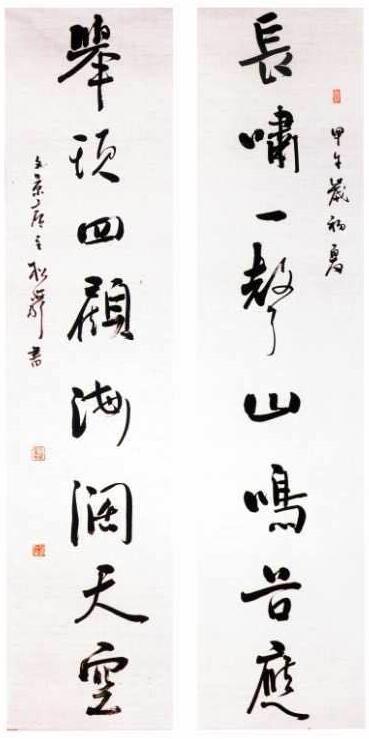 甲午歲初夏
長嘯一聲山鳴谷應
舉頭四顧海闊天空
文景 松 書